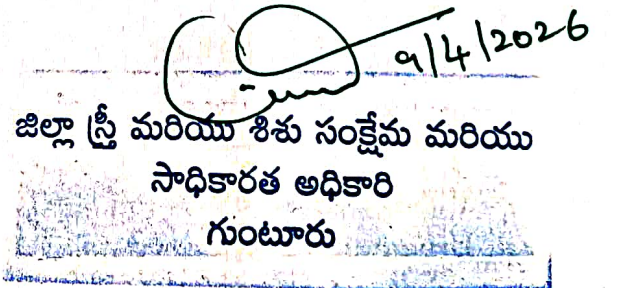 9/4/2026
జిల్లా స్త్రీ మరియు శిశు సంక్షేమ మరియు
సాధికారత అధికారి
గుంటూరు